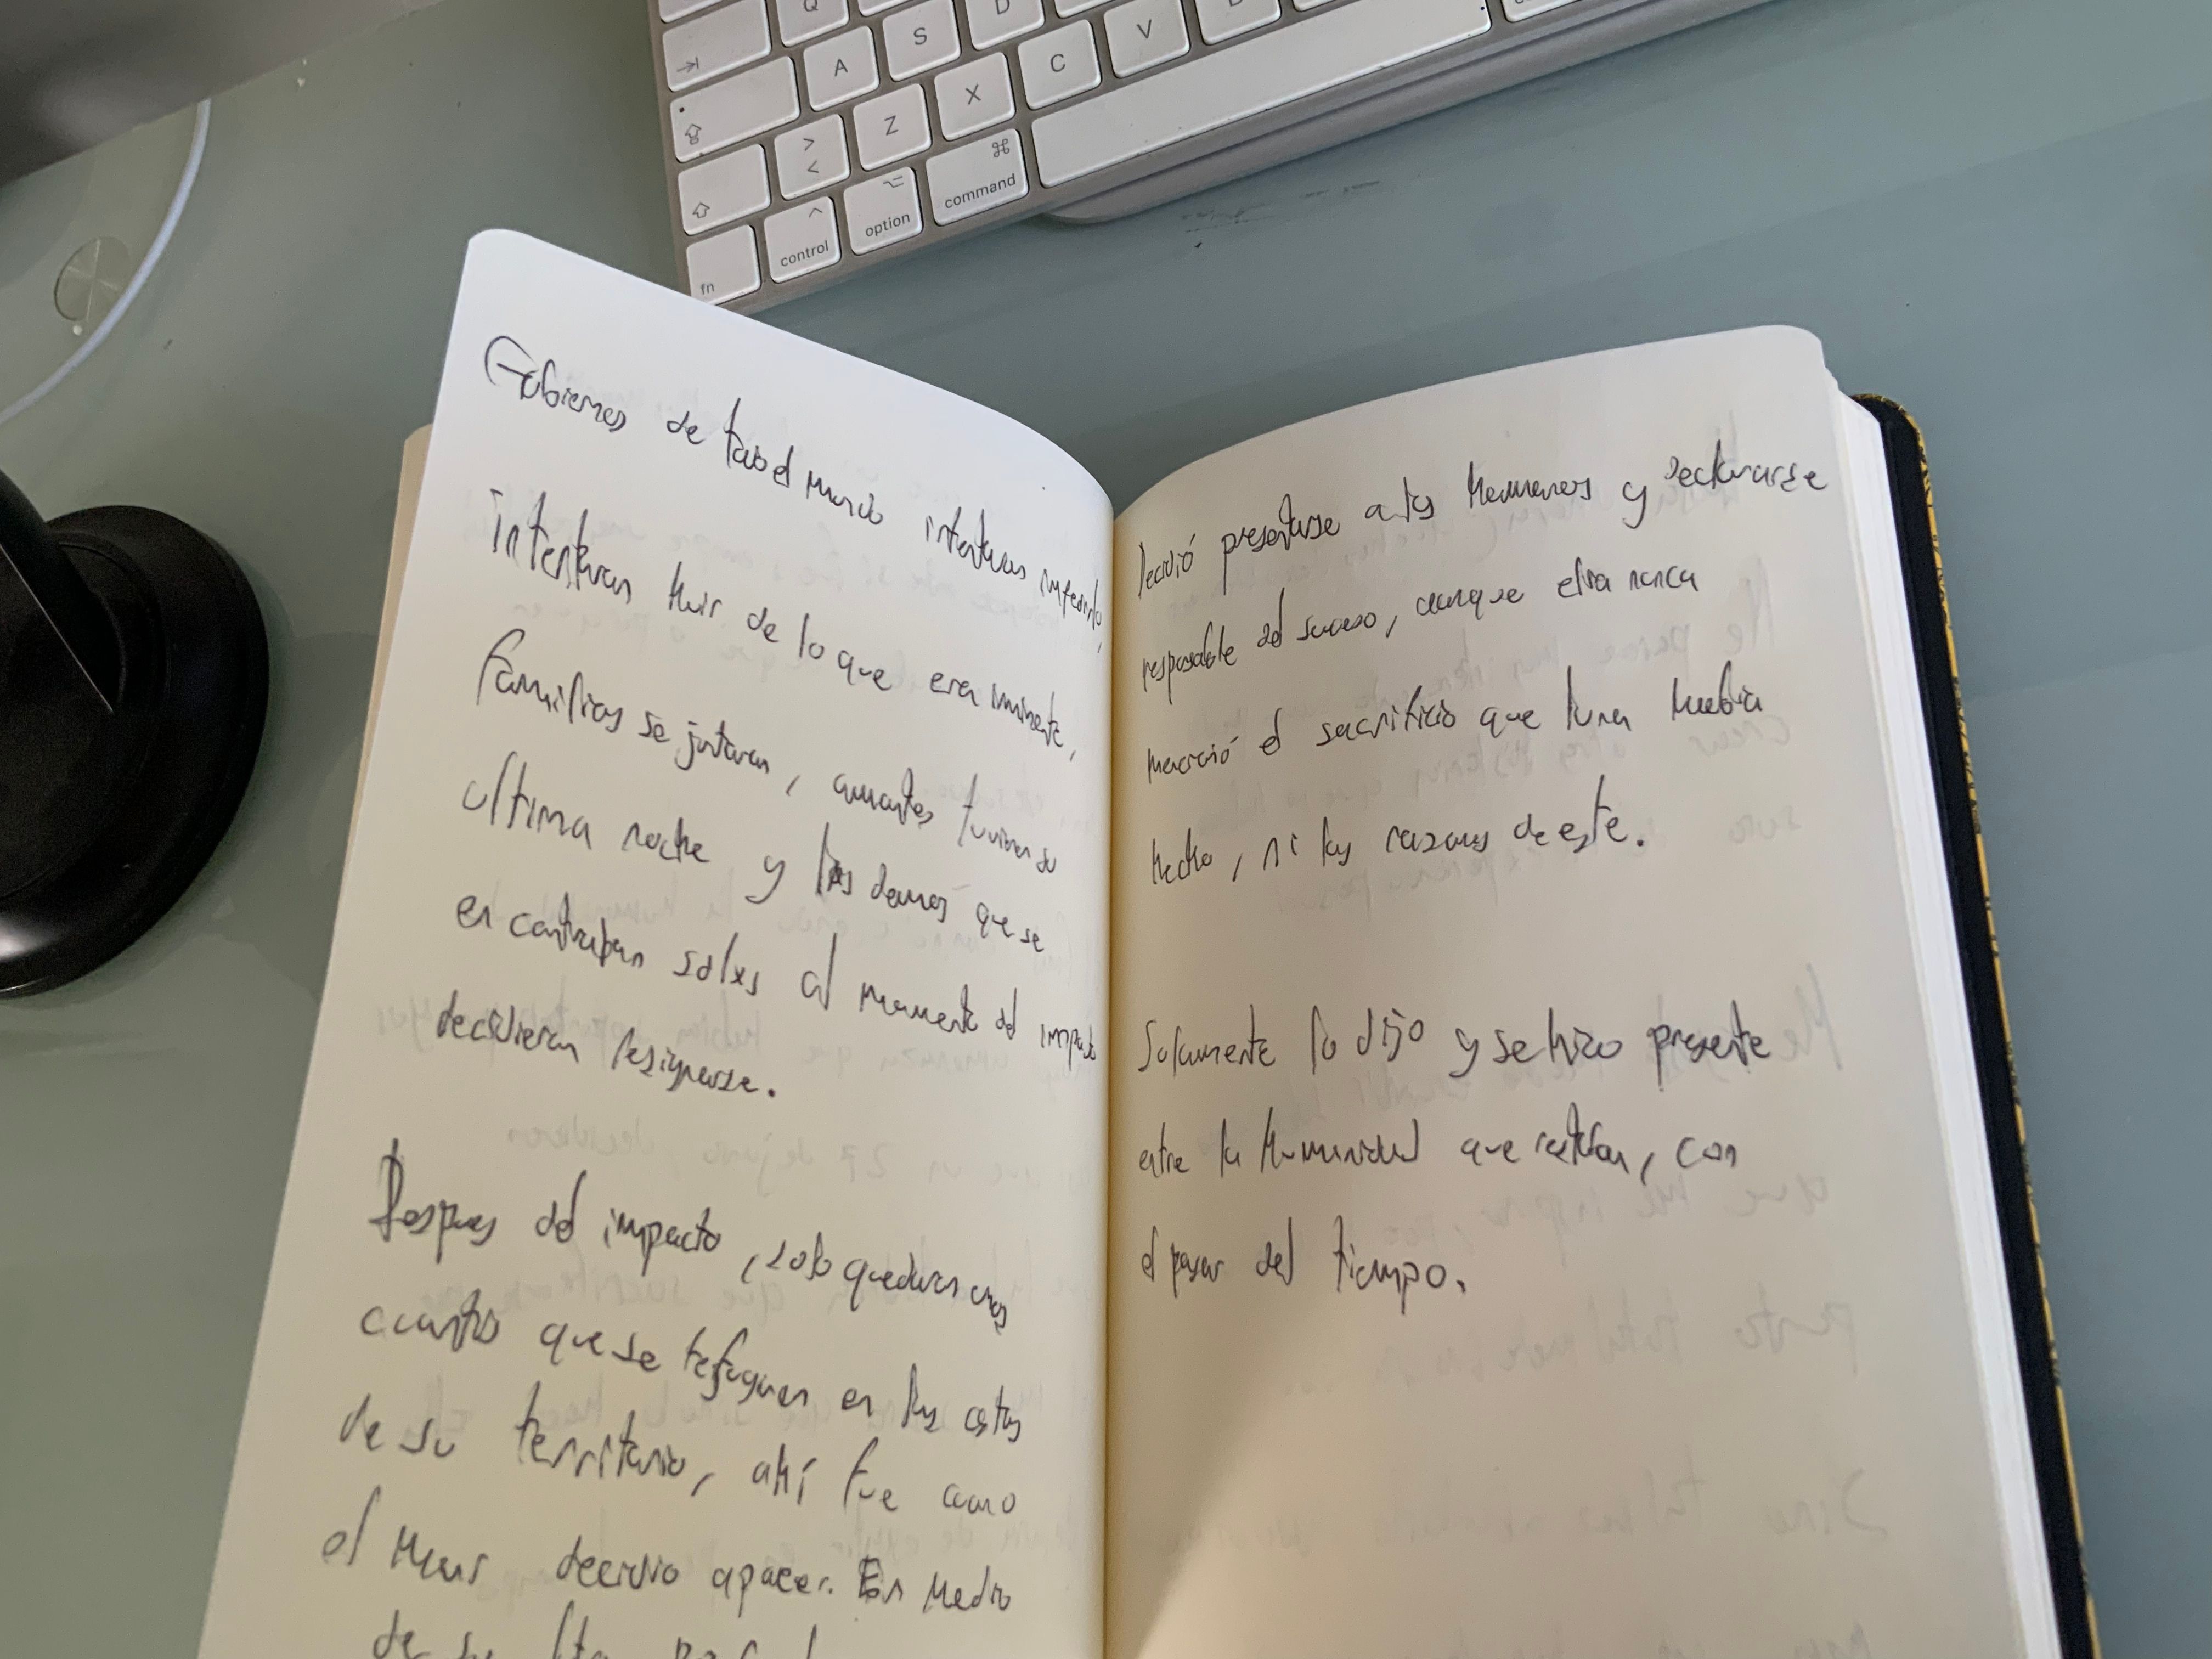 Q
D
A
S
Z
X
C
V
>
<
⌘
command
option
control
fn
Gobiernos de todo el mundo intentaron impedirlo,
intentaron huir de lo que era iminente,
familias se juntaron, amantes tuvieron su
ultima noche y los demás que se
encontraban solos al momento del impacto
decidieron resignarse.
Despues del impacto, solo quedaron unos
cuantos que se refugiaron en las costas
de su territorio, ahí fue como
el Mar decidio apacer. En Medio
de su
decidió presentarse a los Humanos y declararse
responsable del suceso, aunque ella nunca
mereció el sacrificio que luna habia
hecho, ni las razones de este.
Solamente lo dijo y se hizo presente
entre la Humanidad que restaban, con
el pasar del tiempo.